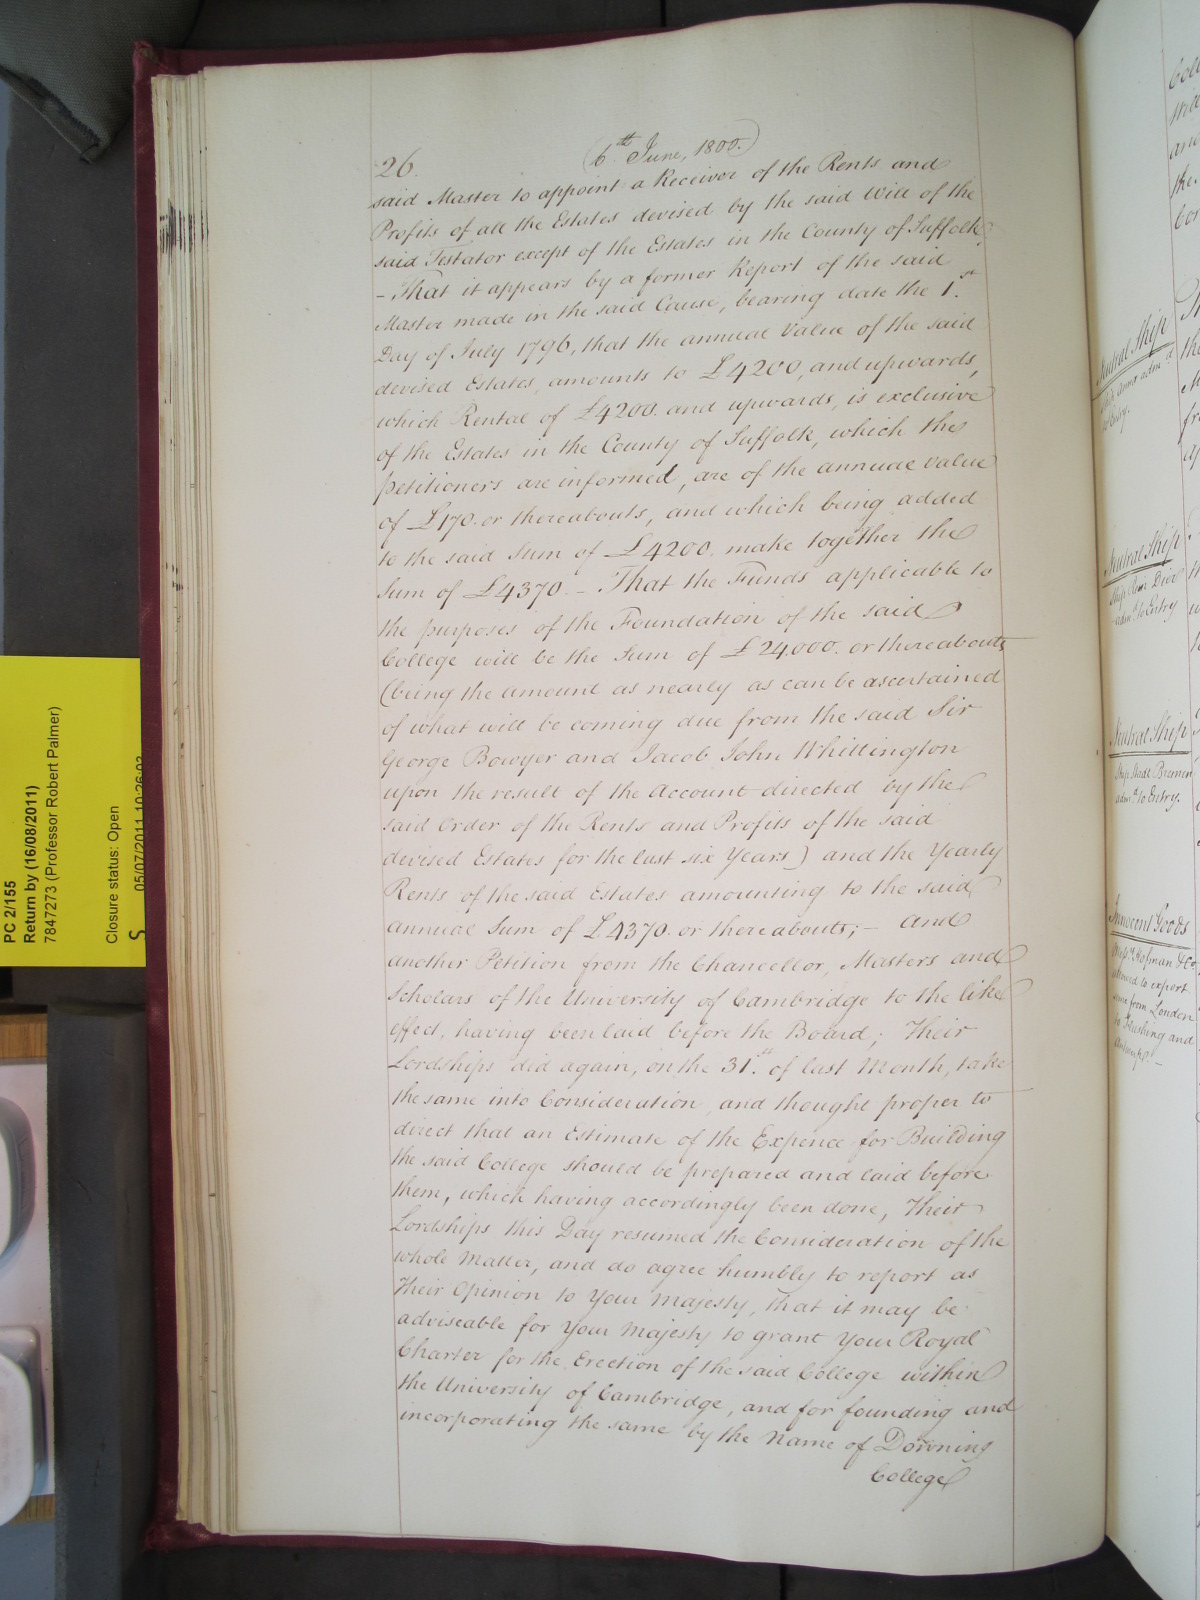 26.
(6th June, 1800.)
said Master to appoint a Receiver of the Rents and
Profits of all the Estates devised by the said Will of the
said Testator except of the Estates in the County of Suffolk,
– That it appears by a former Report of the said
Master made in the said Cause, bearing date the 1.st
Day of July 1796, that the annual Value of the said
devised Estates, amounts to £4200, and upwards,
which Rental of £4200. and upwards, is exclusive
of the Estates in the County of Suffolk, which the
petitioners are informed, are of the annual value
of £170. or thereabouts, and which being added
to the said Sum of £4200. make together the
Sum of £4370. – That the Funds applicable to
the purposes of the Foundation of the said
College will be the Sum of £24,000. or thereabouts
(being the amount as nearly as can be ascertained
of what will be coming due from the said Sir
George Bowyer and Jacob John Whittington
upon the result of the Account directed by the
said Order of the Rents and Profits of the said
devised Estates for the last six Years) and the Yearly
Rents of the said Estates amounting to the said
annual Sum of £4370. or thereabouts; – And
another Petition from the Chancellor, Masters and
Scholars of the University of Cambridge to the like
effect, having been laid before the Board; Their
Lordships did again, on the 31.st of last Month, take
the same into Consideration, and thought proper to
direct that an Estimate of the Expence for Building
the said College should be prepared and laid before
them, which having accordingly been done, Their
Lordships this Day resumed the Consideration of the
whole Matter, and do agree humbly to report as
Their Opinion to Your Majesty, that it may be
adviseable for Your Majesty to grant Your Royal
Charter for the Erection of the said College within
the University of Cambridge, and for founding and
incorporating the same by the Name of Downing
College
PC 2/155
Return by (16/08/2011)
7847273 (Professor Robert Palmer)
Closure status: Open
05/07/2011 10:26:03
S
Neutral Ship
Neutral Ship
adm.d to Entry
Neutral Ship
Bremen
adm.d to Entry.
Innocent Goods
Hofman & Co.
to export
from London
to Flushing and